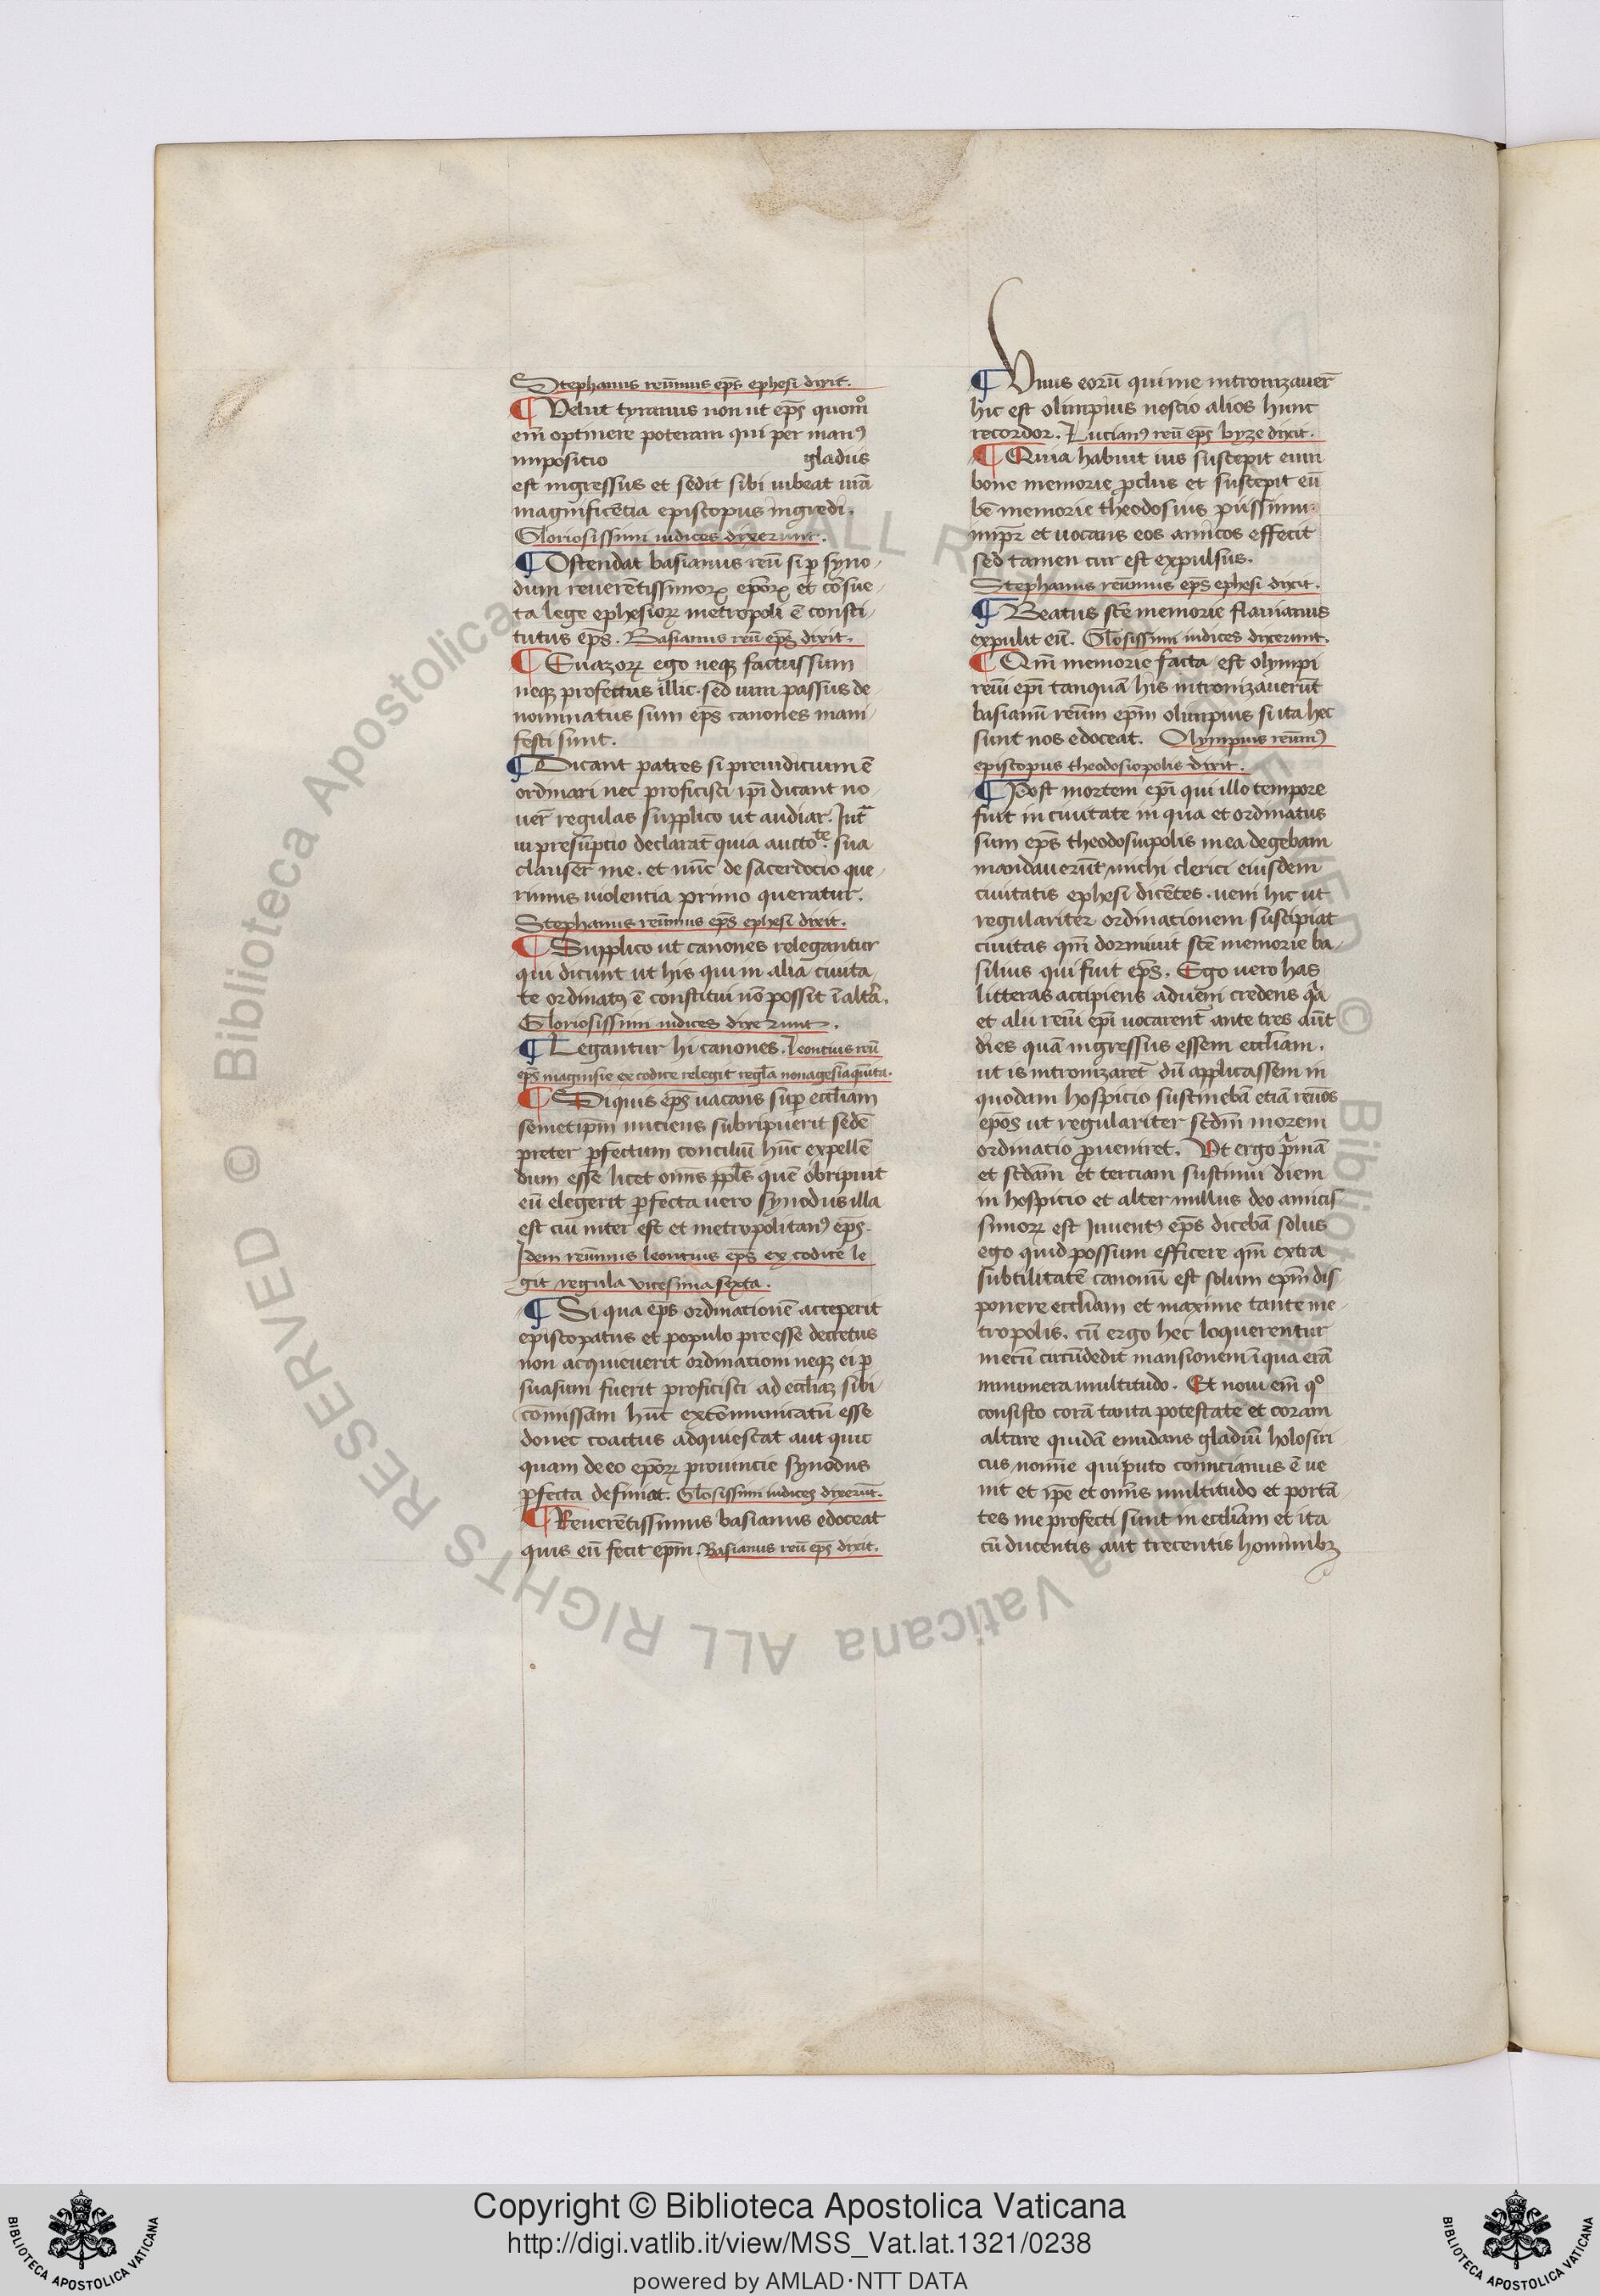 Stephanus reuͫmus ep̄s ephesi dixit.
¶ Velut tyranus non ut ep̄s quomͦ
em̄ optinere poteram qui per manꝰ
impositio gladus
est ingressus et sedit sibi iubeat ur̄a
magnificētia episcopus ingredi.
Gloriosissimi iudices dixerunt.
¶ Ostendat basianus reū si ꝑ syno-
dum reuerētissimorꝝ epōrꝝ et cōsue-
ta lege ephesiorꝝ metropoli ē consti-
tutus ep̄s. Basianus reū ep̄s dixit.
¶ Euazorꝝ ego neqꝫ factus sum
neqꝫ profectus illic. sed uim passus de-
nominatus sum ep̄s canones mani-
festi sunt.
¶ Dicant patres si preiudicium ē
ordinari nec proficisci ip̄i dicant no-
uer̄ regulas supplico ut audiar.
presūptio declarat̄ quia auctoᵗᵉ. sua
clauser̄ me. et nūc de sacerdocio que-
rimus uiolentia primo queratur.
Stephanus reuͫmus ep̄s ephesi dixit.
¶ Supplico ut canones relegantur
qui dicunt ut his qui in alia ciuita-
te ordinatꝰ ē constitui nō possit ī altͣa.
Gloriosissimi iudices dixerunt.
¶ Legantur hi canones. Leontius reū
ep̄s magnisie ex codice relegit regl̄a nonagesīaquīta.
¶ Si quis ep̄s uacans suꝑ eccl̄iam
semetip̄m iniciens subripuerit sedē
preter ꝑfectum conciliū hūc expellē-
dum esse licet om̄s ppl̄s quē obripuit
eū elegerit ꝑfecta uero synodus illa
est cui inter est et metropolitanꝰ ep̄s.
Idem reuͫmus leontius ep̄s ex codice le
git regula vicesima sexta.
¶ Si qua ep̄s ordinationē acceperit
episcopatus et populo preesse decretus
non acquieuerit ordinationi neqꝫ ei ꝑ
suasum fuerit proficisci ad eccl̄iaꝫ sibi
cōmissam hūc excōmunicatū esse
donec coactus adquiescat aut quic
quam de eo epōrꝝ prouincie synodus
ꝑfecta definiat. Glōsissimi iudices dixerūt.
¶ Reuerētissimus basianus edoceat
quis eū fecit ep̄m. Basianus reū ep̄s dixit.
¶ Vnus eorū qui me intronizauer̄
hic est olimpius nescio alios hunc
recordor. Lucianꝰ reū ep̄s byze dixit.
¶ Quia habuit ius suscepit eum
bone memorie ꝓclus et suscepit eū
bē memorie theodosius piissimu
imp̄r et uocans eos amicos effecit
sed tamen cur est expulsus.
Stephanus reuͫmus ep̄s ephesi dixit.
¶ Beatus scē memorie flauianus
expulit eū. Glōsissimi iudices dixerunt.
¶ Qm̄ memorie facta est olympi
reūi ep̄i tanquā his intronizauerūt
basianū reūm ep̄m olimpius si ita hec
sunt nos edoceat. Olympius reuͫmꝰ
episcopus theodosiopolis dixit.
¶ Post mortem ep̄i qui illo tempore
fuit in ciuitate in qua et ordinatus
sum ep̄s theodosiipolis mea degebam
mandauerūt michi clerici eiusdem
ciuitatis ephesi dicētes. ueni hic ut
regulariter ordinationem suscipiat
ciuitas qm̄ dormiuit scē memorie ba-
silius qui fuit ep̄s. Ego uero has
litteras accipiens adueni credens qͣa
et alii reūi ep̄i uocarent̄ ante tres aūt
dies quā ingressus essem eccl̄iam.
ut is intronizaret̄ dū applicassem in
quodam hospicio sustinebā etiā reuōs
epōs ut regulariter scdm̄ morem
ordinatio ꝓueniret. Vt ergo pͥmā
et scdām et terciam sustinui diem
in hospicio et alter nullus deo amicis
simorꝝ est Inuentꝰ ep̄s dicebā solus
ego quid possum efficere qm̄ extra
subtilitatē canonū est solum ep̄m dis
ponere eccl̄iam et maxime tante me-
tropolis. cū ergo hec loquerentur
mecū circūdedit mansionem ī qua erā
innumera multitudo. Et noui em̄ qͦ
consisto corā tanta potestate et coram
altare quidā enudans gladiū holosiri
cus nomīe qui puto comicianus ē ue
nit et ip̄e et om̄s multitudo et portā-
tes me profecti sunt in eccl̄iam et ita
cū ducentis aut trecentis hominibꝫ
© Biblioteca Apostolica Vaticana ALL RIGHTS RESERVED
Copyright © Biblioteca Apostolica Vaticana
http://digi.vatlib.it/view/MSS_Vat.lat.1321/0238
powered by AMLAD·NTT DATA
BIBLIOTECA APOSTOLICA VATICANA
BIBLIOTECA APOSTOLICA VATICANA